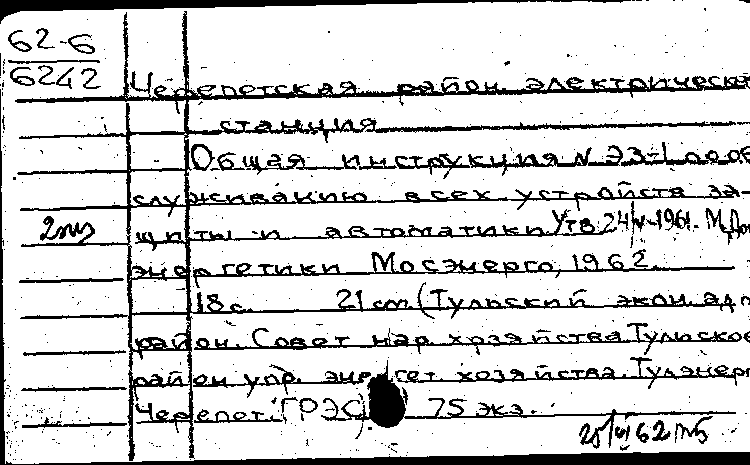 62-6
6242
Черепетская район. электрическая
станция
Общая инструкция N ЭЗ-1 по об
служиванию всех устройств за-
щиты и автоматики Утв. 24/V-1961. М., Дом
2 экз
энергетики Мосэнерго, 1962.
18 с. 21 см (Тульский экон. адм.
район. Совет нар. хозяйства. Тульское
район упр. энергет. хозяйства. Тулэнерго
Черепет. ГРЭС). 75 экз.
62